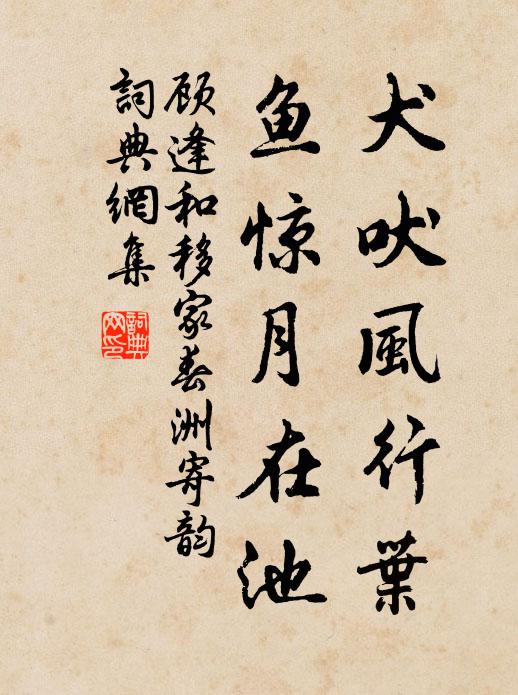 犬吠風行葉
鱼惊月在池
顾逢和移家春洲寄韵
詞典網集
詞典網印